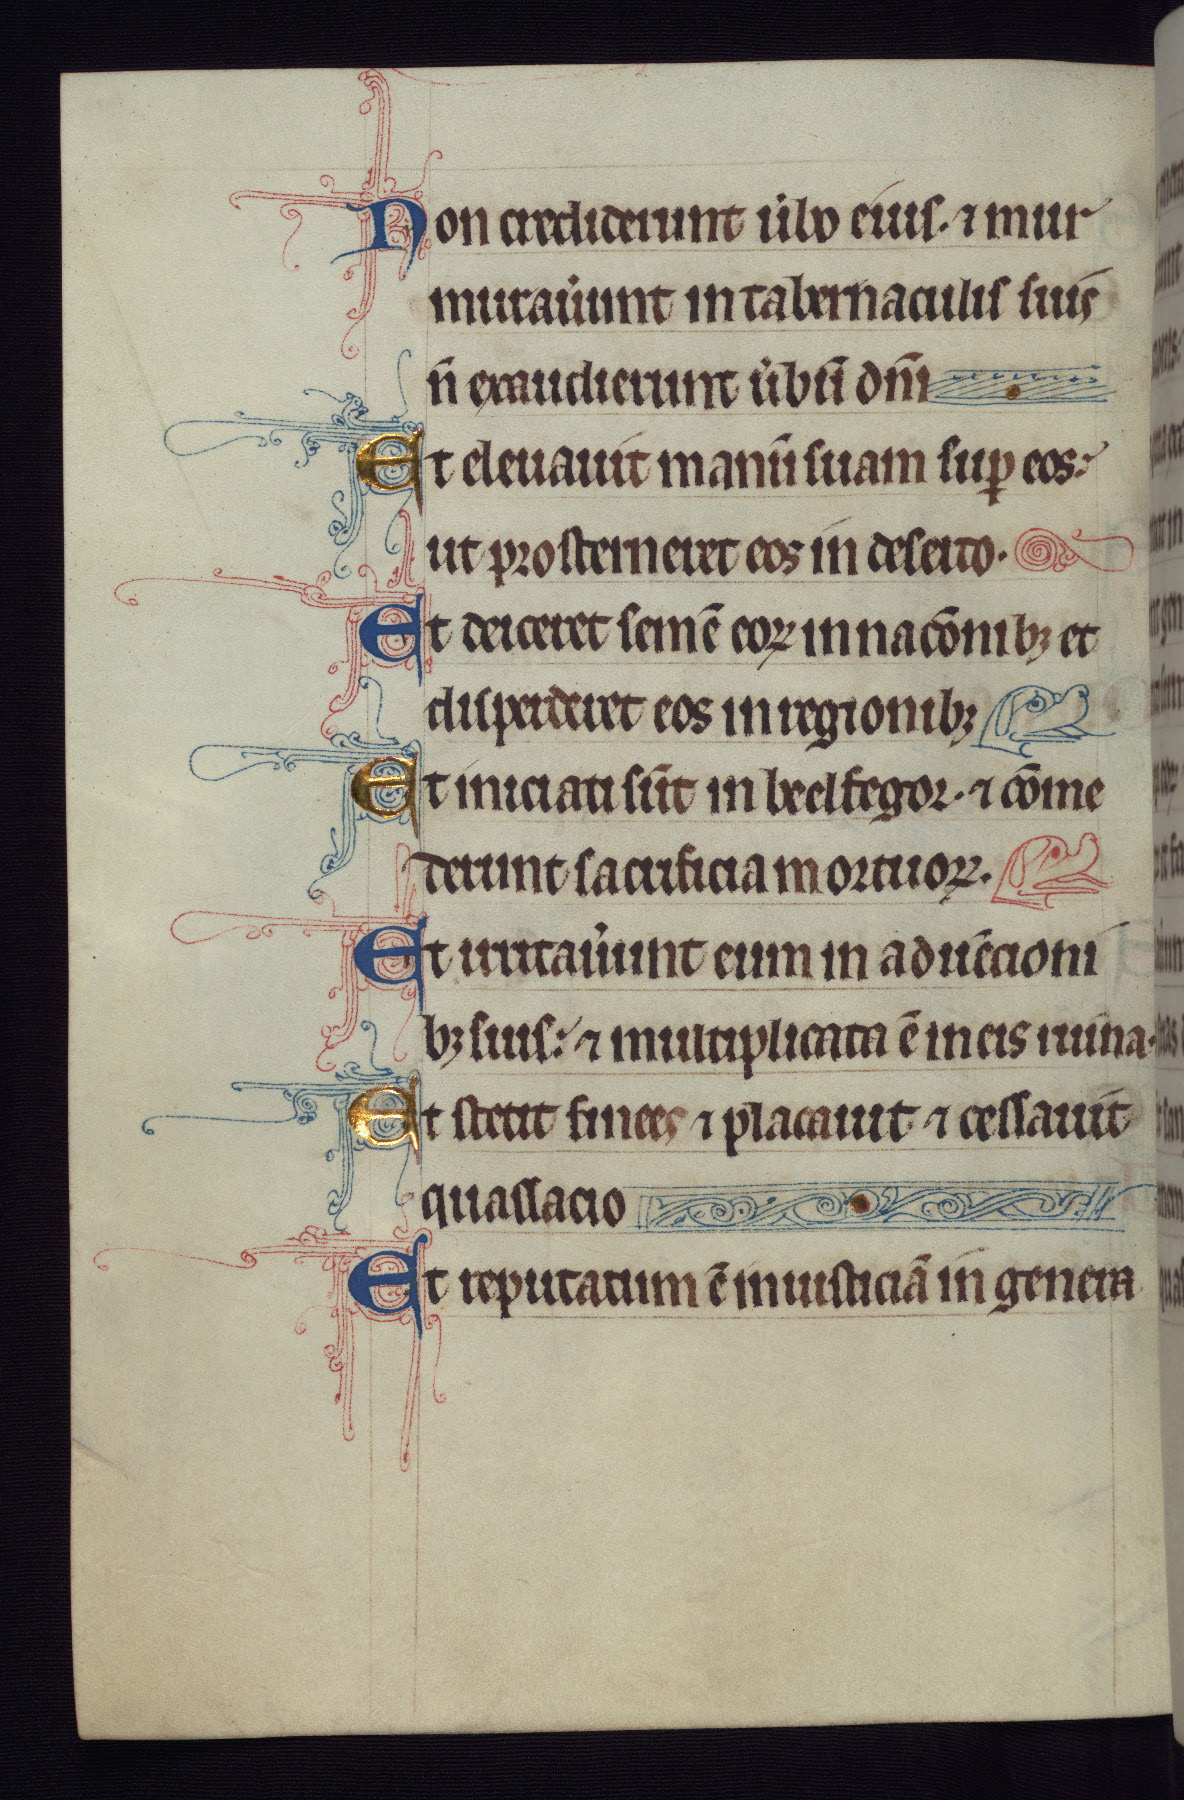 Non crediderunt ûbo eius. ⁊ mur
muraûunt in tabernaculis suis
n̄ exaudierunt ûbū dn̄i
Et eleuauit manū suam suꝑ eos:
ut prosterneret eos in deserto.
Et deiceret semē eoꝝ in nacōnibꝫ et
disperderet eos in regionibꝫ
Et iniciati sūt in beelfegor. ⁊ cōme
derunt sacrificia mortuoꝝ.
Et irritaûunt eum in aduēcioni
bꝫ suis: ⁊ multiplicata ē in eis ruina.
Et stetit finees ⁊ placauit ⁊ cessauit
quassacio
Et reputatum ē in iusticiā in genera